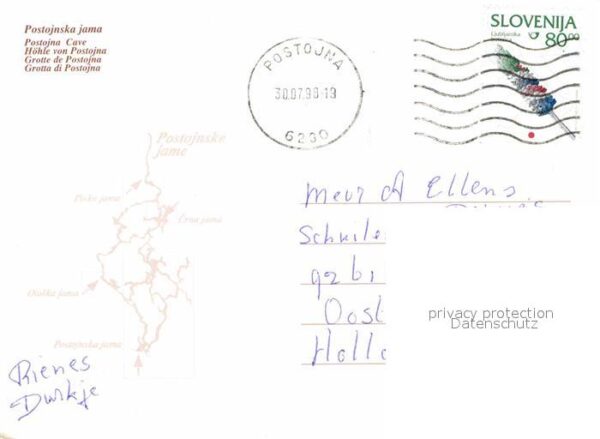 Postojnska jama
Postojna Cave
Höhle von Postojna
Grotte de Postojna
Grotta di Postojna
POSTOJNA
30.07.98-19
6230
SLOVENIJA
Ljubljanska
80.00
Postojnske
jame
Pivka jama
Črna jama
Otoška jama
Postojnska jama
Mevr A Ellens
Schuile
Oost
Holla
privacy protection
Datenschutz
Rienes
Durkje